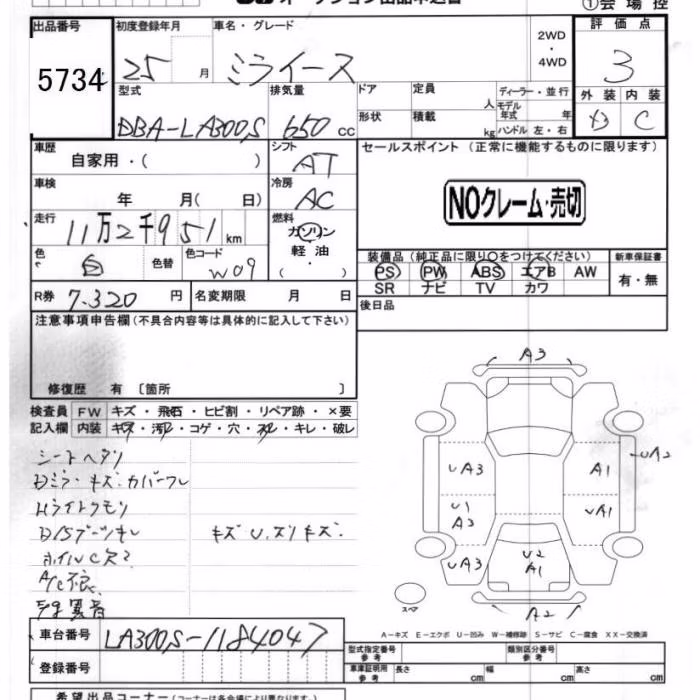 ①会場控
出品番号
5734
初度登録年月
25 年 月
車名・グレード
ミライース
2WD
・
4WD
評価点
3
型式
DBA-LA300S
排気量
650 cc
ドア
定員
人
形状
積載
kg
ディーラー・並行
モデル年式 年
ハンドル 左・右
外装
内装
C
車歴
自家用・( )
シフト
AT
セールスポイント (正常に機能するものに限ります)
車検
年 月( 日)
冷房
AC
NOクレーム・売切
走行
11万2千951 km
燃料
ガソリン
軽油
( )
色
白
色替
色コード
W09
装備品 (純正品に限り○をつけてください)
PS PW ABS エアB AW
SR ナビ TV カワ
新車保証書
有・無
R券 7,320 円
名変期限 月 日
後日品
注意事項申告欄 (不具合内容等は具体的に記入して下さい)
修復歴 有 〔箇所 〕
検査員記入欄
FW キズ・飛石・ヒビ割・リペア跡・×要
内装 キズ・汚レ・コゲ・穴・スレ・キレ・破レ
シートヘタリ
Dミラーキズ・カバーフレ
Hライトクモリ
D/Sブーツキレ
キズ U.スリキズ.
A/C不良
異音
A3
UA3
A1
UA2
U1
A3
UA1
UA3
U2
A1
A2
スペア
A－キズ E－エクボ U－凹み W－補修跡 S－サビ C－腐食 XX－交換済
車台番号
LA300S-1184047
登録番号
型式指定番号
参考
類別区分番号
参考
車庫証明用
参考
長さ cm
幅 cm
高さ cm
希望出品コーナー